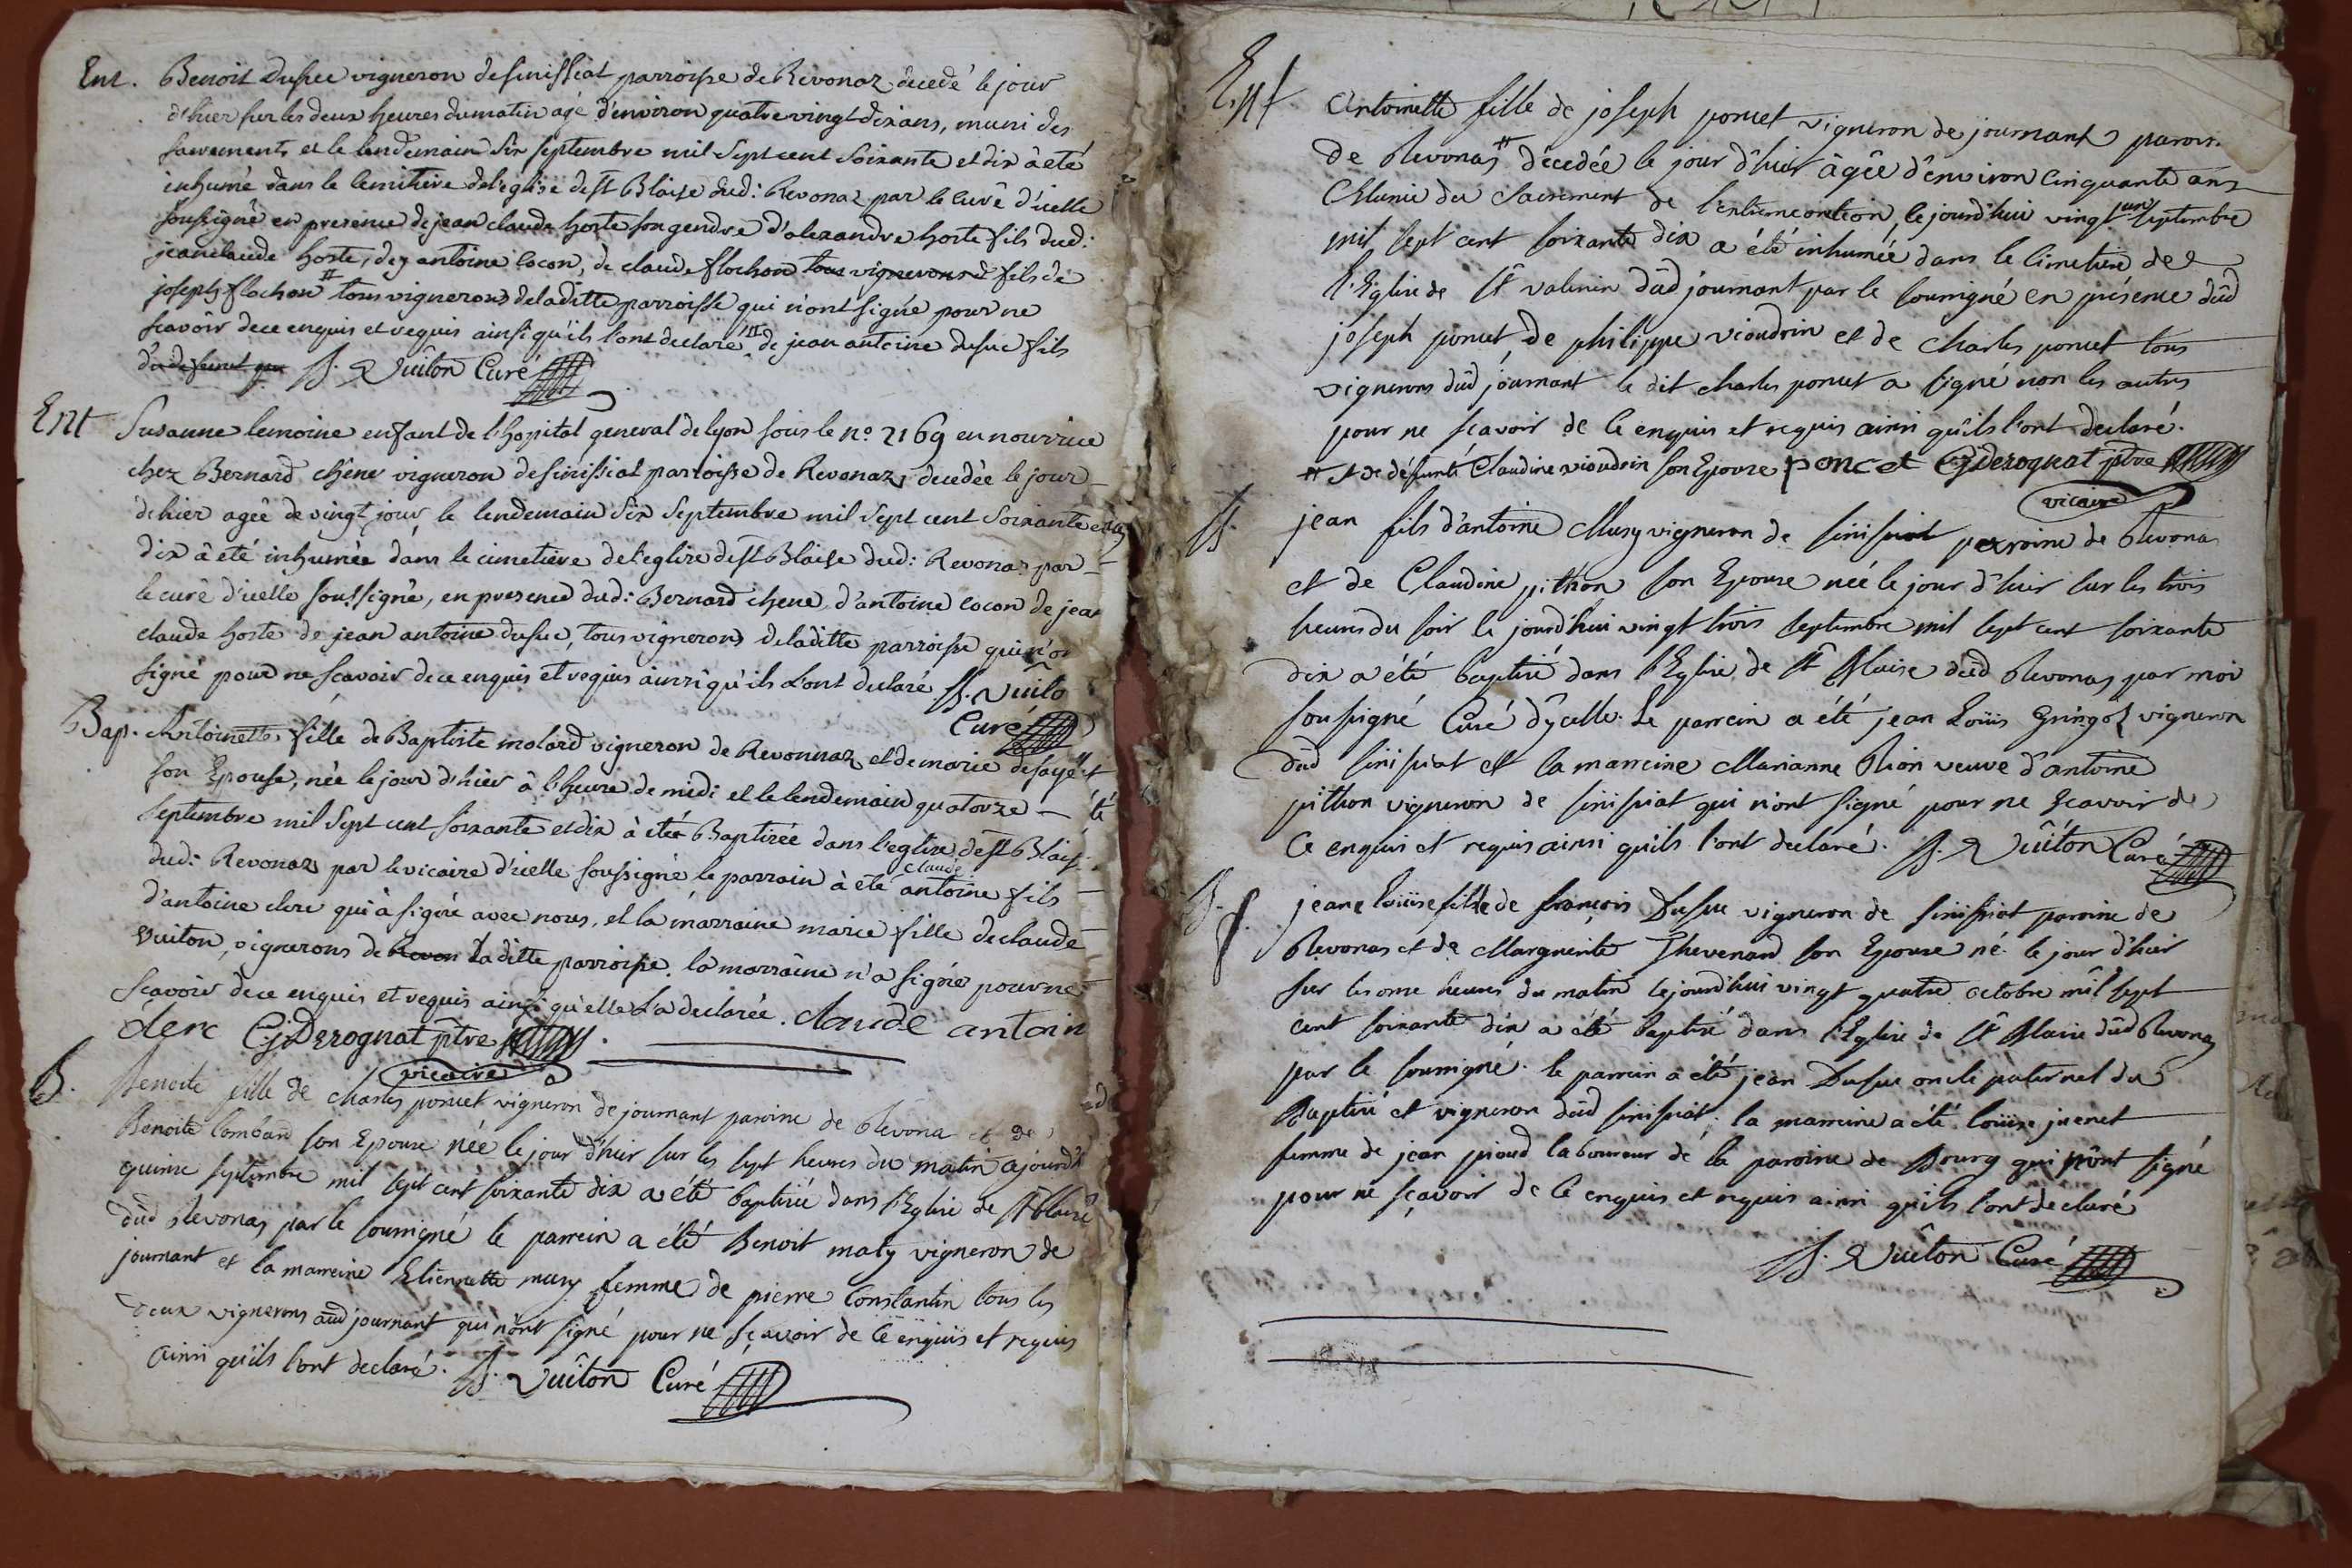 Ent. Benoit Dufuc vigneron de sinissiat parroisse de Revonaz decedé le jour
d'hier sur les deux heures du matin agé d'environ quatre vingt dix ans, muni des
sacrements et le lendemain six septembre mil sept cent soixante et dix à eté
inhumé dans le cemitiere de l'eglise de st Blaise dud: Revonaz par le curé d'icelle
soussigné en presence de jean claude hoste son gendre d'alexandre hoste fils dud:
jean claude hoste, de antoine cocon, de claude flochon tous vignerons fils de
joseph flochon # tous vignerons de laditte parroisse qui n'ont signé pour ne
scavoir de ce enquis et requis ainsi qu'ils l'ont declaré # de jean antoine dufuc fils
du defunt B. Vuiton Curé
Ent Susanne lemoine enfant de l'hopital general de lyon sous le no 2169 en nourrice
chez Bernard chêne vigneron de sinissiat parroisse de Revonaz decedée le jour
d'hier agée de vingt jour, le lendemain six septembre mil sept cent soixante et
dix à été inhumée dans le cimetiere de l'eglise de st Blaise dud: Revonaz par
le curé d'icelle soussigné, en presence dud: Bernard chene, d'antoine cocon de jean
claude hoste de jean antoine dufuc, tous vignerons de laditte parroisse qui n'o
signé pour ne scavoir de ce enquis et requis ainsi qu'ils l'ont declaré B. Vuito
Curé
Bap. Antoinette fille de Baptiste molard vigneron de Revonnaz et de marie defayet
son Epouse, née le jour d'hier à l'heure de midi et le lendemain quatorze
septembre mil sept cent soixante et dix à eté Baptizée dans l'eglise de st Blaise
dud: Revonaz par le vicaire d'icelle soussigné le parrain à été claude antoine fils
d'antoine clerc qui à signé avec nous, et la marraine marie fille de claude
Vuiton, vignerons de Revon laditte parroisse. la marraine n'a signée pour ne
scavoir de ce enquis et requis ainsi qu'elle l'a declarée. claude antoin
clerc C.j. Derognat ptre
vicaire
B. Benoite fille de charles poncet vigneron de journant paroisse de Revona et de
Benoite lombard son Epouse née le jour d'hier sur les sept heures du matin ajourd'h
quinze septembre mil sept cent soixante dix a été baptisée dans l'Eglise de st Blaise
dud Revonas par le soussigné le parrein a été Benoit maty vigneron de
journant et la marreine Etiennette musy femme de pierre Constantin tous les
deux vignerons aud journant qui n'ont signé pour ne scavoir de ce enquis et requis
ainsi qu'ils l'ont declaré. B. Vuiton Curé
Ent Antoinette fille de joseph poncet vigneron de journant parois
de Revonas # décedée le jour d'hier âgée d'environ cinquante ans
Munie du Sacrement de l'extremeontion, lejourd'hui vingt un septembre
mil sept cent soixante dix a été inhumée dans le cimetiere de
l'Eglise de st valerin dud journant par le soussigné en présence dud
joseph poncet, de philippe vioudrin et de charles poncet tous
vignerons dud journant le dit charles poncet a signé non les autres
pour ne scavoir de ce enquis et requis ainsi qu'ils l'ont declaré.
# et de défunte Claudine vioudrin son Epouse poncet C.j. Derognat ptre
vicaire
B. jean fils d'antoine Musy vigneron de sinissiat paroisse de Revona
et de Claudine pithon son Epouse née le jour d'hier sur les trois
heures du soir le jourd'hui vingt trois septembre mil sept cent soixante
dix a été baptisé dans l'Eglise de st Blaise dud Revonas par moi
soussigné Curé d'ycelle. Le parrein a été jean Louis Gringoz vigneron
dud sinissiat et la marreine Marianne Rion veuve d'antoine
pithon vigneron de sinissiat qui n'ont signé pour ne scavoir de
ce enquis et requis ainsi qu'ils l'ont declaré. B. Vuiton Curé
B. jeane Louise fille de françois Dufuc vigneron de sinissiat paroisse de
Revonas et de Marguerite Thevenard son Epouse né le jour d'hier
sur les onze heures du matin lejourd'hui vingt quatre octobre mil sept
cent soixante dix a été baptisé dans l'Eglise de st Blaise dud Revonas
par le soussigné. le parrein a été jean Dufuc oncle paternel du
Baptisé et vigneron dud sinissiat. la marreine a été louise juenet
femme de jean pioud laboureur de la paroisse de Bourg qui n'ont signé
pour ne sçavoir de ce enquis et requis ainsi qu'ils l'ont declaré
B. Vuiton Curé